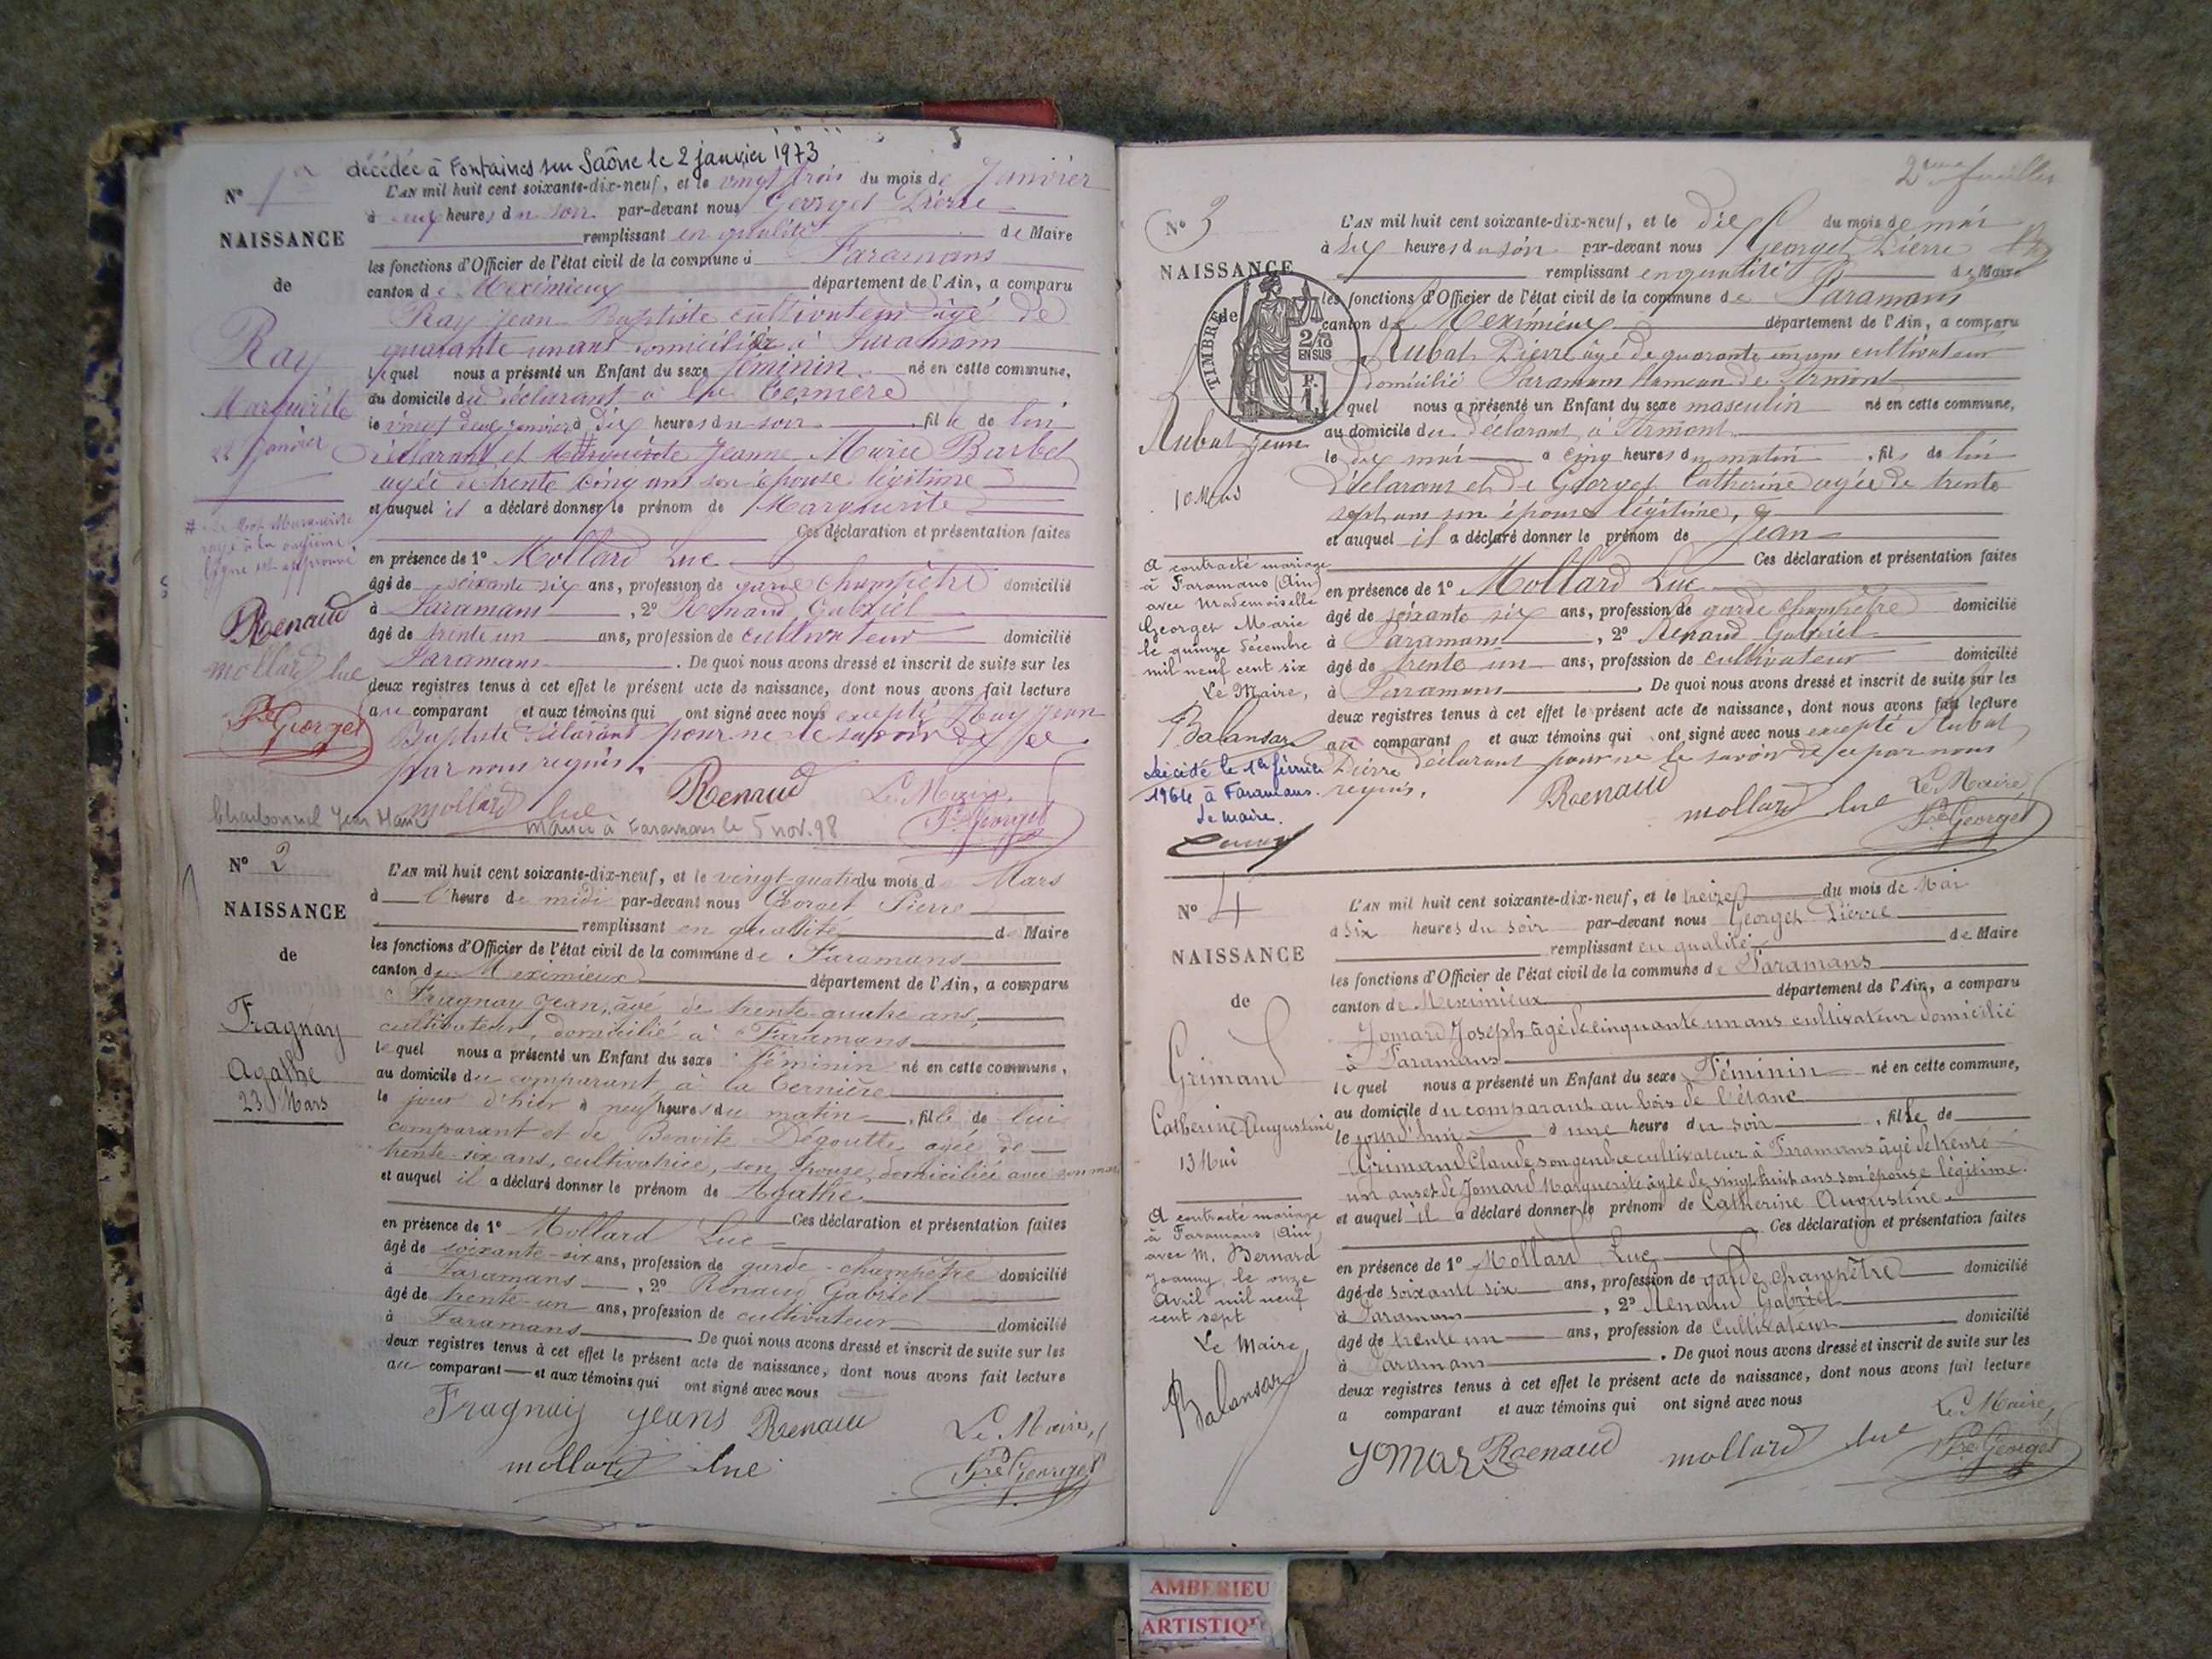 décédée à Fontaines sur Saône le 2 janvier 1973
N° 1er
NAISSANCE
de
Ray
Marguerite
22 Janvier
L'AN mil huit cent soixante-dix-neuf, et le vingt trois du mois de Janvier
à heures du soir par-devant nous Georget Pierre
remplissant en qualité de Maire
les fonctions d'Officier de l'état civil de la commune de Faramans
canton de Meximieux département de l'Ain, a comparu
Ray Jean Baptiste cultivateur âgé de
quarante un ans domicilié à Faramans
lequel nous a présenté un Enfant du sexe féminin né en cette commune,
au domicile du déclarant à la Bernière
le vingt deux janvier à dix heures du soir , fille de lui
déclarant et Marguerite Jeanne Marie Barbet
agée de trente cinq ans son épouse légitime
et auquel il a déclaré donner le prénom de Marguerite
Ces déclaration et présentation faites
en présence de 1° Mollard Luc
âgé de soixante six ans, profession de garde champêtre domicilié
à Faramans , 2° Renaud Gabriel
âgé de trente un ans, profession de cultivateur domicilié
Faramans . De quoi nous avons dressé et inscrit de suite sur les
deux registres tenus à cet effet le présent acte de naissance, dont nous avons fait lecture
au comparant et aux témoins qui ont signé avec nous excepté Ray Jean
Baptiste déclarant pour ne le savoir de ce
par nous requis.
# Le mot Marguerite
rayé à la onzième
ligne est approuvé
Renaud
mollard luc
Pre Georget
Renaud
Le Maire,
mollard luc
Pre Georget
Charbonnel Jean Marie
Mariée à Faramans le 5 nov. 98
N° 2
NAISSANCE
de
Fragnay
Agathe
23 Mars
L'AN mil huit cent soixante-dix-neuf, et le vingt-quatre du mois de Mars
à l'heure de midi par-devant nous Georget Pierre
remplissant en qualité de Maire
les fonctions d'Officier de l'état civil de la commune de Faramans
canton de Meximieux département de l'Ain, a comparu
Fragnay Jean, âgé de trente-quatre ans,
cultivateur, domicilié à Faramans
lequel nous a présenté un Enfant du sexe féminin né en cette commune,
au domicile du comparant à la Bernière
le jour d'hier à neuf heures du matin , fille de lui
comparant et de Benoite Dégoutte, agée de
trente-six ans, cultivatrice, son épouse, domiciliée avec son mari
et auquel il a déclaré donner le prénom de Agathe
Ces déclaration et présentation faites
en présence de 1° Mollard Luc
âgé de soixante-six ans, profession de garde-champêtre domicilié
à Faramans , 2° Renaud Gabriel
âgé de trente-un ans, profession de cultivateur
à Faramans domicilié
De quoi nous avons dressé et inscrit de suite sur les
deux registres tenus à cet effet le présent acte de naissance, dont nous avons fait lecture
au comparant et aux témoins qui ont signé avec nous
Fragnay jeans Renaud
Le Maire,
mollard luc
Pre Georget
2eme feuillet
N° 3
NAISSANCE
de
TIMBRE
2/10
EN SUS
Rubat Jean
10 Mai
L'AN mil huit cent soixante-dix-neuf, et le dix du mois de mai
à six heures du soir par-devant nous Georget Pierre
remplissant en qualité de Maire
les fonctions d'Officier de l'état civil de la commune de Faramans
canton de Meximieux département de l'Ain, a comparu
Rubat Pierre âgé de quarante un ans cultivateur
domicilié Faramans hameau de Firmont
lequel nous a présenté un Enfant du sexe masculin né en cette commune,
au domicile du déclarant à Firmont
le dix mai à cinq heures du matin , fils de lui
déclarant et de Georget Catherine agée de trente
sept ans son épouse légitime,
et auquel il a déclaré donner le prénom de Jean
Ces déclaration et présentation faites
en présence de 1° Mollard Luc
âgé de soixante six ans, profession de garde champêtre domicilié
à Faramans , 2° Renaud Gabriel
âgé de trente un ans, profession de cultivateur domicilié
à Faramans . De quoi nous avons dressé et inscrit de suite sur les
deux registres tenus à cet effet le présent acte de naissance, dont nous avons fait lecture
au comparant et aux témoins qui ont signé avec nous excepté Rubat
Pierre déclarant pour ne le savoir de ce par nous
requis.
A contracté mariage
à Faramans (Ain)
avec Mademoiselle
Georget Marie
le quinze décembre
mil neuf cent six
Le Maire,
Balansard
Décédé le 1er février
1964 à Faramans.
Le maire.
Renaud
mollard luc
Le Maire,
Pre Georget
N° 4
NAISSANCE
de
Grimand
Catherine Augustine
13 Mai
L'AN mil huit cent soixante-dix-neuf, et le treize du mois de Mai
à six heures du soir par-devant nous Georget Pierre
remplissant en qualité de Maire
les fonctions d'Officier de l'état civil de la commune de Faramans
canton de Meximieux département de l'Ain, a comparu
Jomard Joseph âgé de cinquante un ans cultivateur domicilié
à Faramans
lequel nous a présenté un Enfant du sexe Féminin né en cette commune,
au domicile du comparant au bois de l'étanc
le jourd'hui à une heure du soir , fille de
Grimand Claude son gendre cultivateur à Faramans âgé de trente
un ans et de Jomard Marguerite âgée de vingt huit ans son épouse légitime.
et auquel il a déclaré donner le prénom de Catherine Augustine
Ces déclaration et présentation faites
en présence de 1° Mollard Luc
âgé de soixante six ans, profession de garde champêtre domicilié
à Faramans , 2° Renaud Gabriel
âgé de trente un ans, profession de Cultivateur domicilié
à Faramans . De quoi nous avons dressé et inscrit de suite sur les
deux registres tenus à cet effet le présent acte de naissance, dont nous avons fait lecture
a comparant et aux témoins qui ont signé avec nous
A contracté mariage
à Faramans (Ain)
avec M. Bernard
Joanny, le onze
Avril mil neuf
cent sept
Le Maire,
Balansard
Le Maire,
Jomar Renaud mollard luc Pre Georget
AMBERIEU
ARTISTIQU